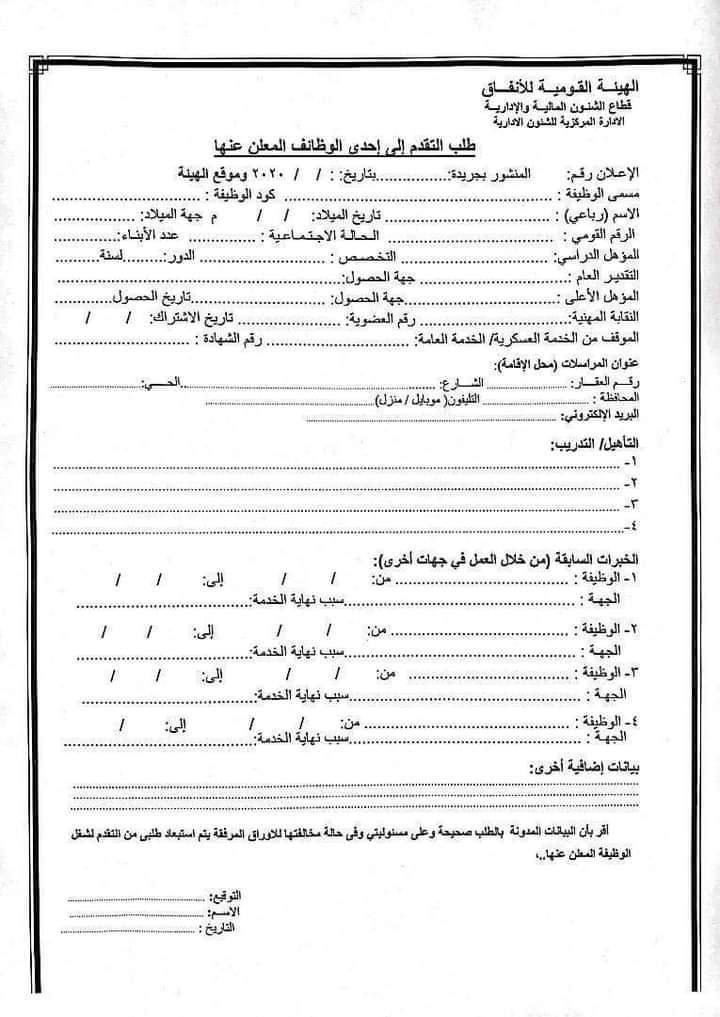 الهيئة القومية للأنفاق
قطاع الشئون المالية والإدارية
الادارة المركزية للشئون الادارية
طلب التقدم إلى إحدى الوظائف المعلن عنها
الإعلان رقم: المنشور بجريدة:...............بتاريخ: : / / ٢٠٢٠ وموقع الهيئة
مسمى الوظيفة : ........................ كود الوظيفة : ........................
الاسم (رباعي) : ........................ تاريخ الميلاد: / / م جهة الميلاد: ...............
الرقم القومي : ........................ الحالة الاجتماعية : ............... عدد الأبناء:............
المؤهل الدراسي: ........................ التخصص : ............... الدور:.........لسنة..........
التقدير العام : ........................ جهة الحصول:........................
المؤهل الأعلى : ........................جهة الحصول: ........................تاريخ الحصول...............
النقابة المهنية:........................ رقم العضوية: ............... تاريخ الاشتراك: / /
الموقف من الخدمة العسكرية/ الخدمة العامة: ........................ رقم الشهادة : ...............
عنوان المراسلات (محل الإقامة):
رقم العقار: ............... الشارع: ........................الحي:...............
المحافظة : ............... التليفون( موبايل / منزل)........................
البريد الإلكتروني: ........................
التأهيل/ التدريب:
١- ........................
٢- ........................
٣- ........................
٤- ........................
الخبرات السابقة (من خلال العمل في جهات أخرى):
١- الوظيفة : ........................ من: / / إلى: / /
الجهة : ........................سبب نهاية الخدمة:........................
٢- الوظيفة : ........................ من: / / إلى: / /
الجهة : ........................سبب نهاية الخدمة:........................
٣- الوظيفة : ........................ من: / / إلى: / /
الجهة : ........................سبب نهاية الخدمة:........................
٤- الوظيفة : ........................ من: / / إلى: /
الجهة : ........................سبب نهاية الخدمة:........................
بيانات إضافية أخرى:
........................
........................
........................
أقر بأن البيانات المدونة بالطلب صحيحة وعلى مسئوليتي وفى حالة مخالفتها للاوراق المرفقة يتم استبعاد طلبى من التقدم لشغل
الوظيفة المعلن عنها..،
التوقيع: ........................
الاسم: ........................
التاريخ : ........................